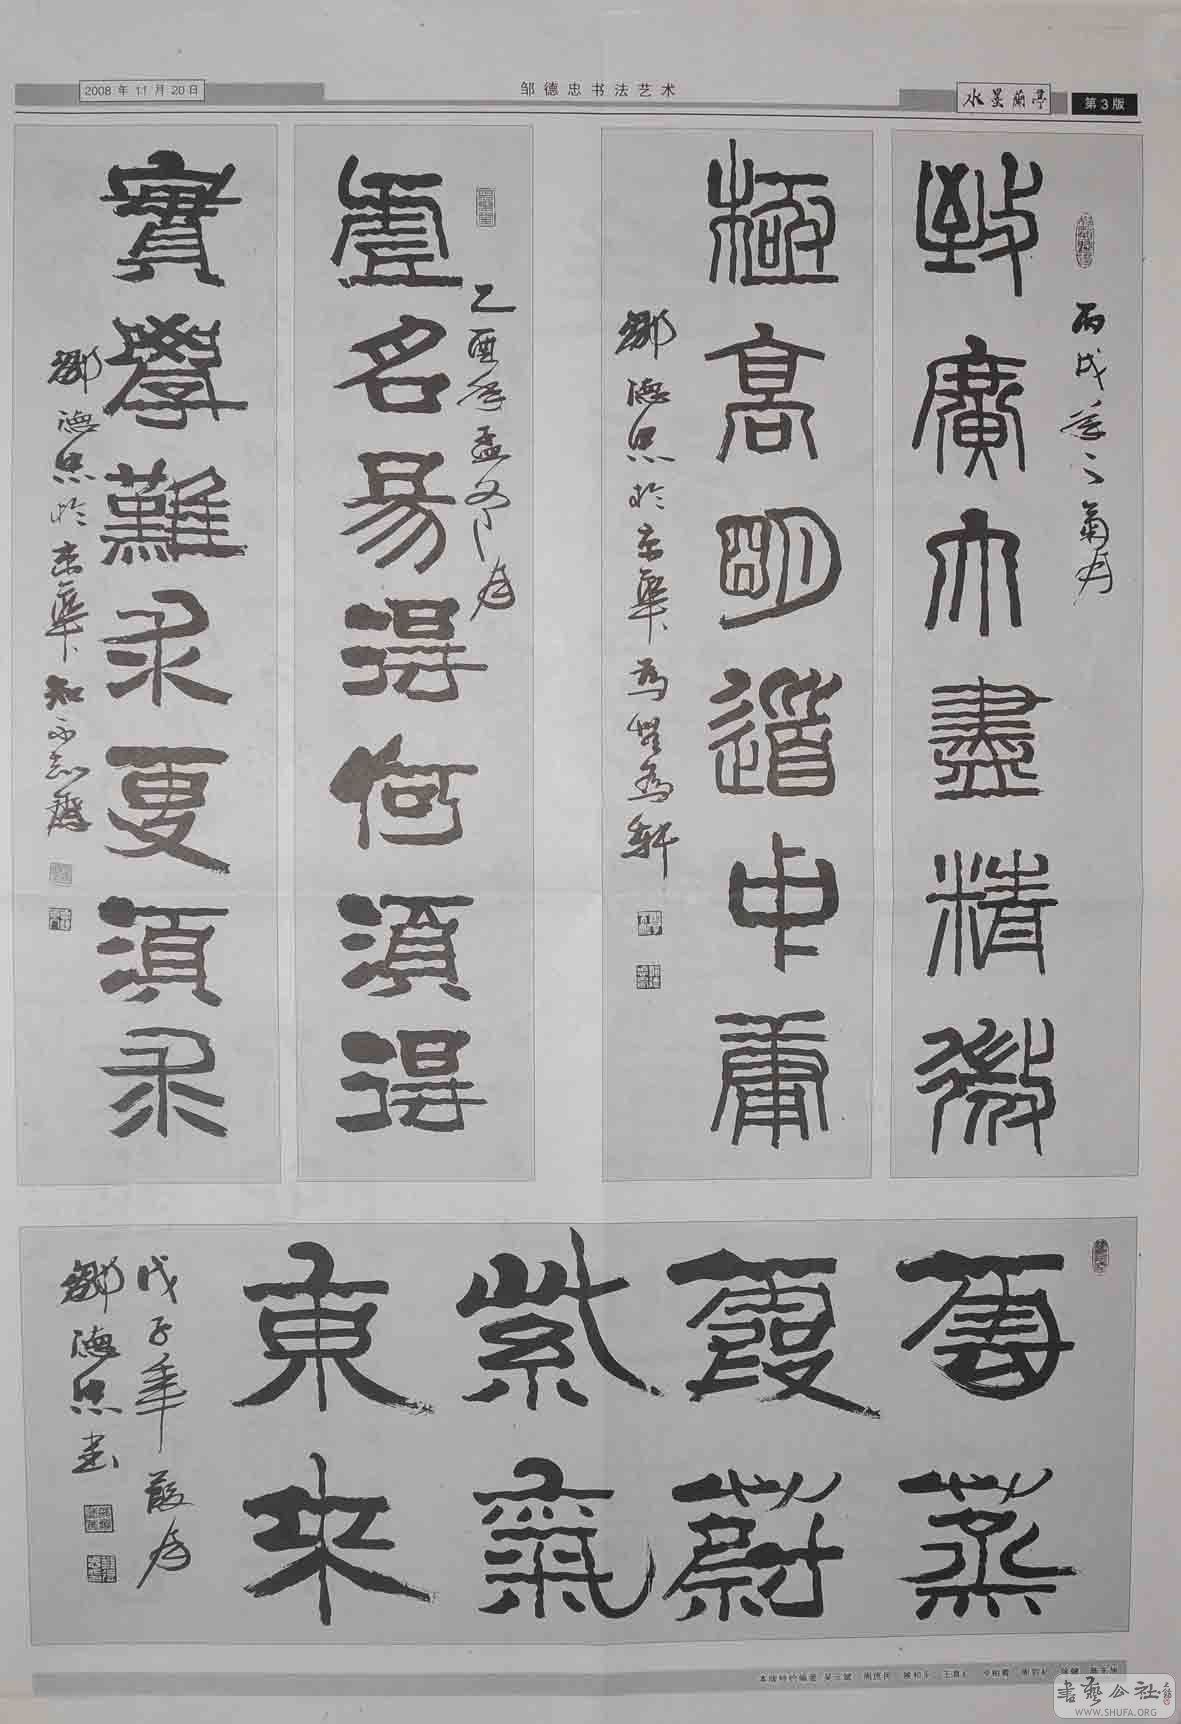 2008 年 11 月 20 日
邹德忠书法艺术
水墨蘭亭
第 3 版
丙戌年之菊月
致廣大盡精微
極高明道中庸
鄒德忠於京華
乙酉年孟冬月
虛名易得何須得
實學難求更須求
鄒德忠於京華知不知齋
雲蒸
霞蔚
紫氣
東來
戊子年葭月
鄒德忠書
書藝公社
WWW.SHUFA.ORG